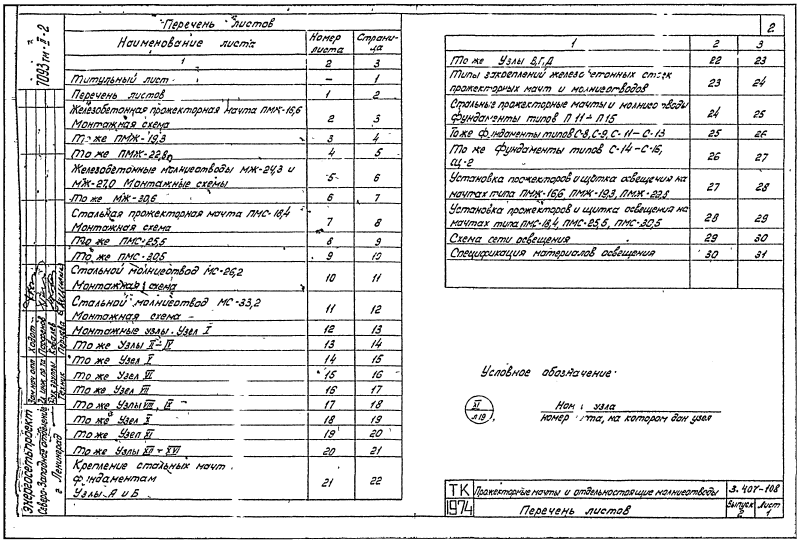 2
7093 тм-II-2
Перечень листов
Наименование листа Номер листа Страница
1 2 3
Титульный лист — 1
Перечень листов 1 2
Железобетонная прожекторная мачта ПМЖ-16,6
Монтажная схема 2 3
То же ПМЖ-19,3 3 4
То же ПМЖ-22,8 4 5
Железобетонные молниеотводы МЖ-24,3 и
МЖ-27,0 Монтажные схемы 5 6
То же МЖ-30,6 6 7
Стальная прожекторная мачта ПМС-18,4
Монтажная схема 7 8
То же ПМС-25,5 8 9
То же ПМС-30,5 9 10
Стальной молниеотвод МС-26,2
Монтажная схема 10 11
Стальной молниеотвод МС-33,2
Монтажная схема 11 12
Монтажные узлы. Узел I 12 13
То же Узлы II-IV 13 14
То же Узел V 14 15
То же Узел VI 15 16
То же Узел VII 16 17
То же Узлы VIII, IX 17 18
То же Узел X 18 19
То же Узел XI 19 20
То же Узлы XII ÷ XVI 20 21
Крепление стальных мачт
фундаментам
Узлы А и Б 21 22
1 2 3
То же Узлы В,Г,Д 22 23
Типы закреплений железобетонных стоек
прожекторных мачт и молниеотводов 23 24
Стальные прожекторные мачты и молниеотводы
Фундаменты типов П11÷П15 24 25
То же Фундаменты типов С-8, С-9, С-11÷С-13 25 26
То же Фундаменты типов С-14-С-16,
СЦ-2 26 27
Установка прожекторов и щитка освещения на
мачтах типа ПМЖ-16,6, ПМЖ-19,3, ПМЖ-22,8 27 28
Установка прожекторов и щитка освещения на
мачтах типа ПМС-18,4, ПМС-25,5, ПМС-30,5 28 29
Схема сети освещения 29 30
Спецификация материалов освещения 30 31
Условное обозначение
XI
л19
Номер узла
номер листа, на котором дан узел
Энергосетьпроект
Северо-Западное отделение
г Ленинград
ТК
1974
Прожекторные мачты и отдельностоящие молниеотводы
Перечень листов
3.407-108
Выпуск 2
Лист 1